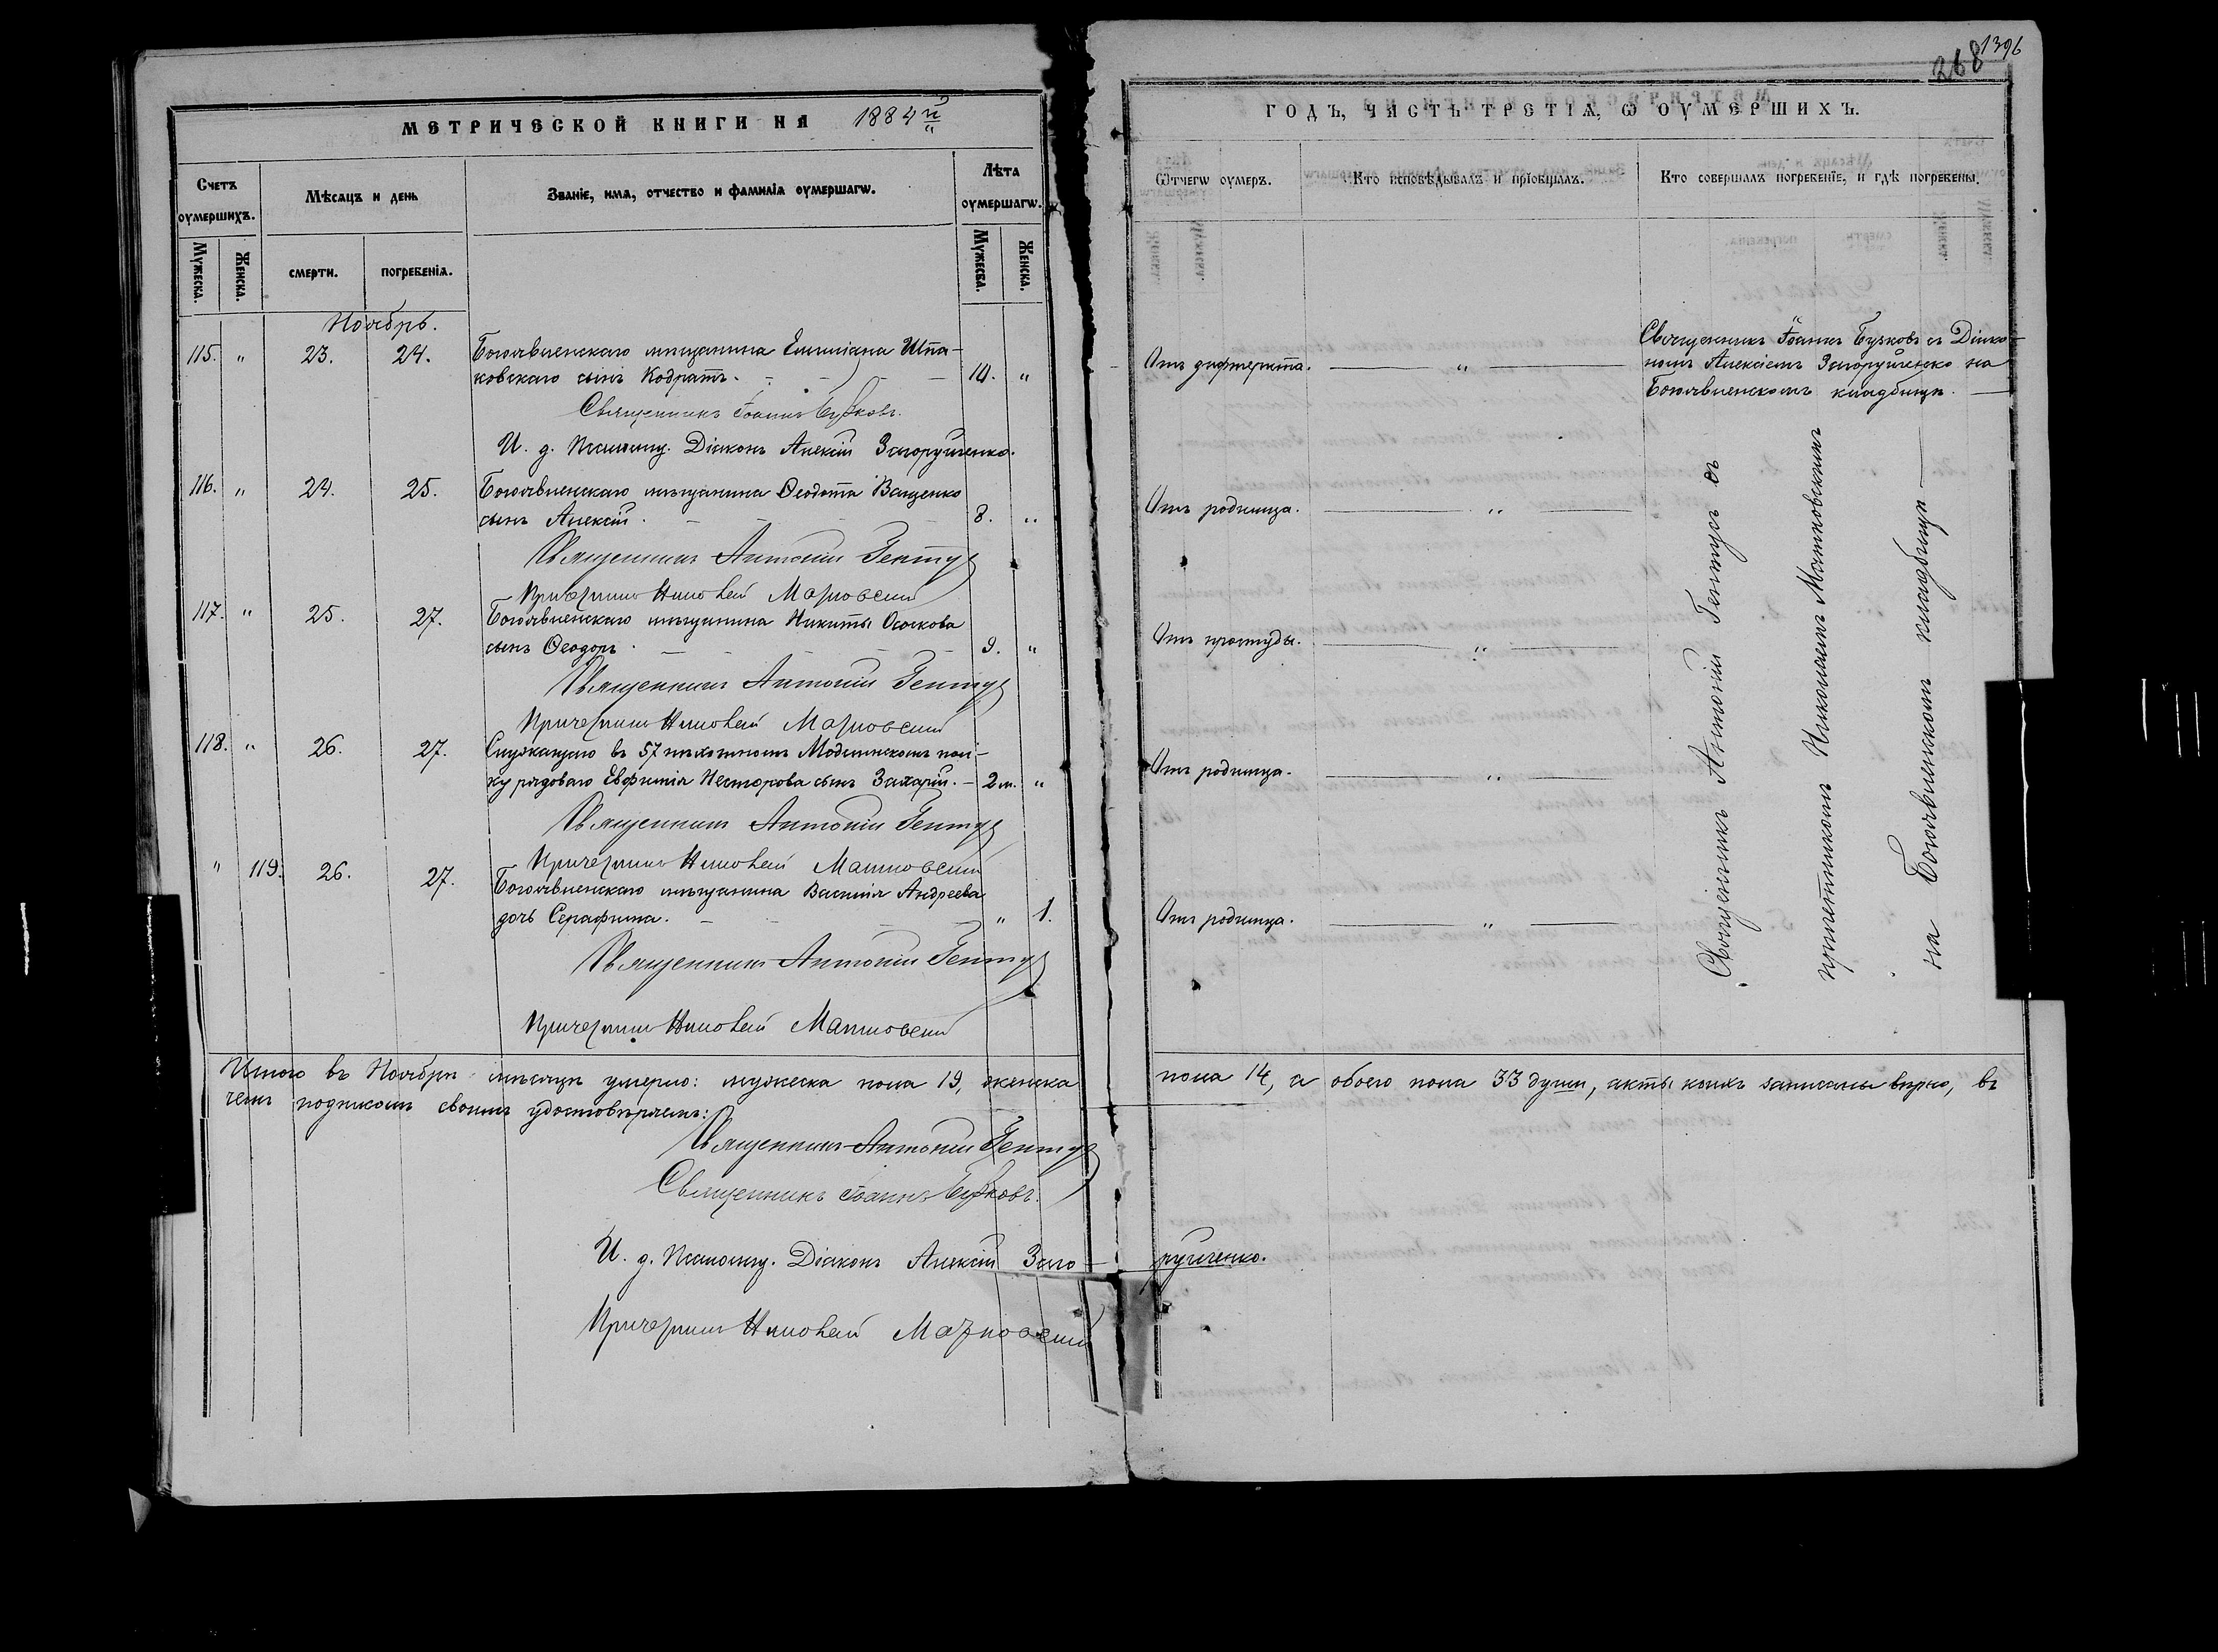 1396
268
МЕТРИЧЕСКОЙ КНИГИ НА 1884 й
ГОДЪ, ЧАСТЬ ТРЕТІѦ, Ѡ ОУМЕРШИХЪ.
Счетъ оумершихъ.
Мѣсяцъ и день
Званіе, имя, отчество и фамилія оумершагѡ.
Лѣта оумершагѡ.
Ѿчегѡ оумеръ.
Кто исповѣдывалъ и пріобщалъ.
Кто совершалъ погребеніе, и гдѣ погребены.
Мужеска.
Женска.
смерти.
погребенія.
Мужеска.
Женска.
Ноябрь.
115. " 23. 24. Богоявленскаго мѣщанина Емиліана Шпа-
ковскаго сынъ Кодратъ. - - - 10. "
Отъ дифтерита. — " —
Священникъ Іоаннъ Бузковъ съ Діако-
номъ Алексіемъ Загоруйченко на
Богоявленскомъ кладбищѣ. —
Священникъ Іоаннъ Бузковъ.
И. д. Псаломщ. Діаконъ Алексій Загоруйченко.
116. " 24. 25. Богоявленскаго мѣщанина Ѳеодота Ващенко
сынъ Алексій. - - - 8. "
Отъ родимца. — " —
Священникъ Антоній Гентус
Причетникъ Николай Матковскій
117. " 25. 27. Богоявленскаго мѣщанина Никиты Осокова
сынъ Ѳеодоръ. - - - 9. "
Отъ простуды. — " —
Священникъ Антоній Гентус
Причетникъ Николай Матковскій
118. " 26. 27. Служащаго въ 57 пѣхотномъ Модлинскомъ пол-
ку рядоваго Евфимія Несторова сынъ Захарій. - 2 м. "
Отъ родимца. — " —
Священникъ Антоній Гентус
Причетникъ Николай Матковскій
" 119. 26. 27. Богоявленскаго мѣщанина Василія Андреева
дочь Серафима. - - - " 1.
Отъ родимца. — " —
Священникъ Антоній Гентус
Причетникъ Николай Матковскій
Священникъ Антоній Гентусъ съ
причетникомъ Николаемъ Матковскимъ
на Богоявленскомъ кладбищѣ —
Итого въ Ноябрѣ мѣсяцѣ умерло: мужеска пола 19, женска пола 14, а обоего пола 33 души, акты коихъ записаны вѣрно, въ
чемъ подписомъ своимъ удостовѣряемъ:
Священникъ Антоній Гентус
Священникъ Іоаннъ Бузковъ.
И. д. Псаломщ. Діаконъ Алексій Заго-руйченко.
Причетникъ Николай Матковскій